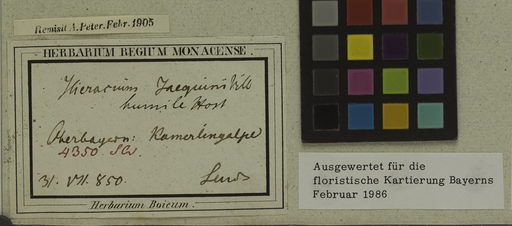 Remisit A. Peter. Febr. 1905
HERBARIUM REGIUM MONACENSE.
Hieracium Jacquini Vill
humile Host
Oberbayern: Kamerlingalpe
4350
31. VII. 850.
Herbarium Boicum.
Ausgewertet für die
floristische Kartierung Bayerns
Februar 1986